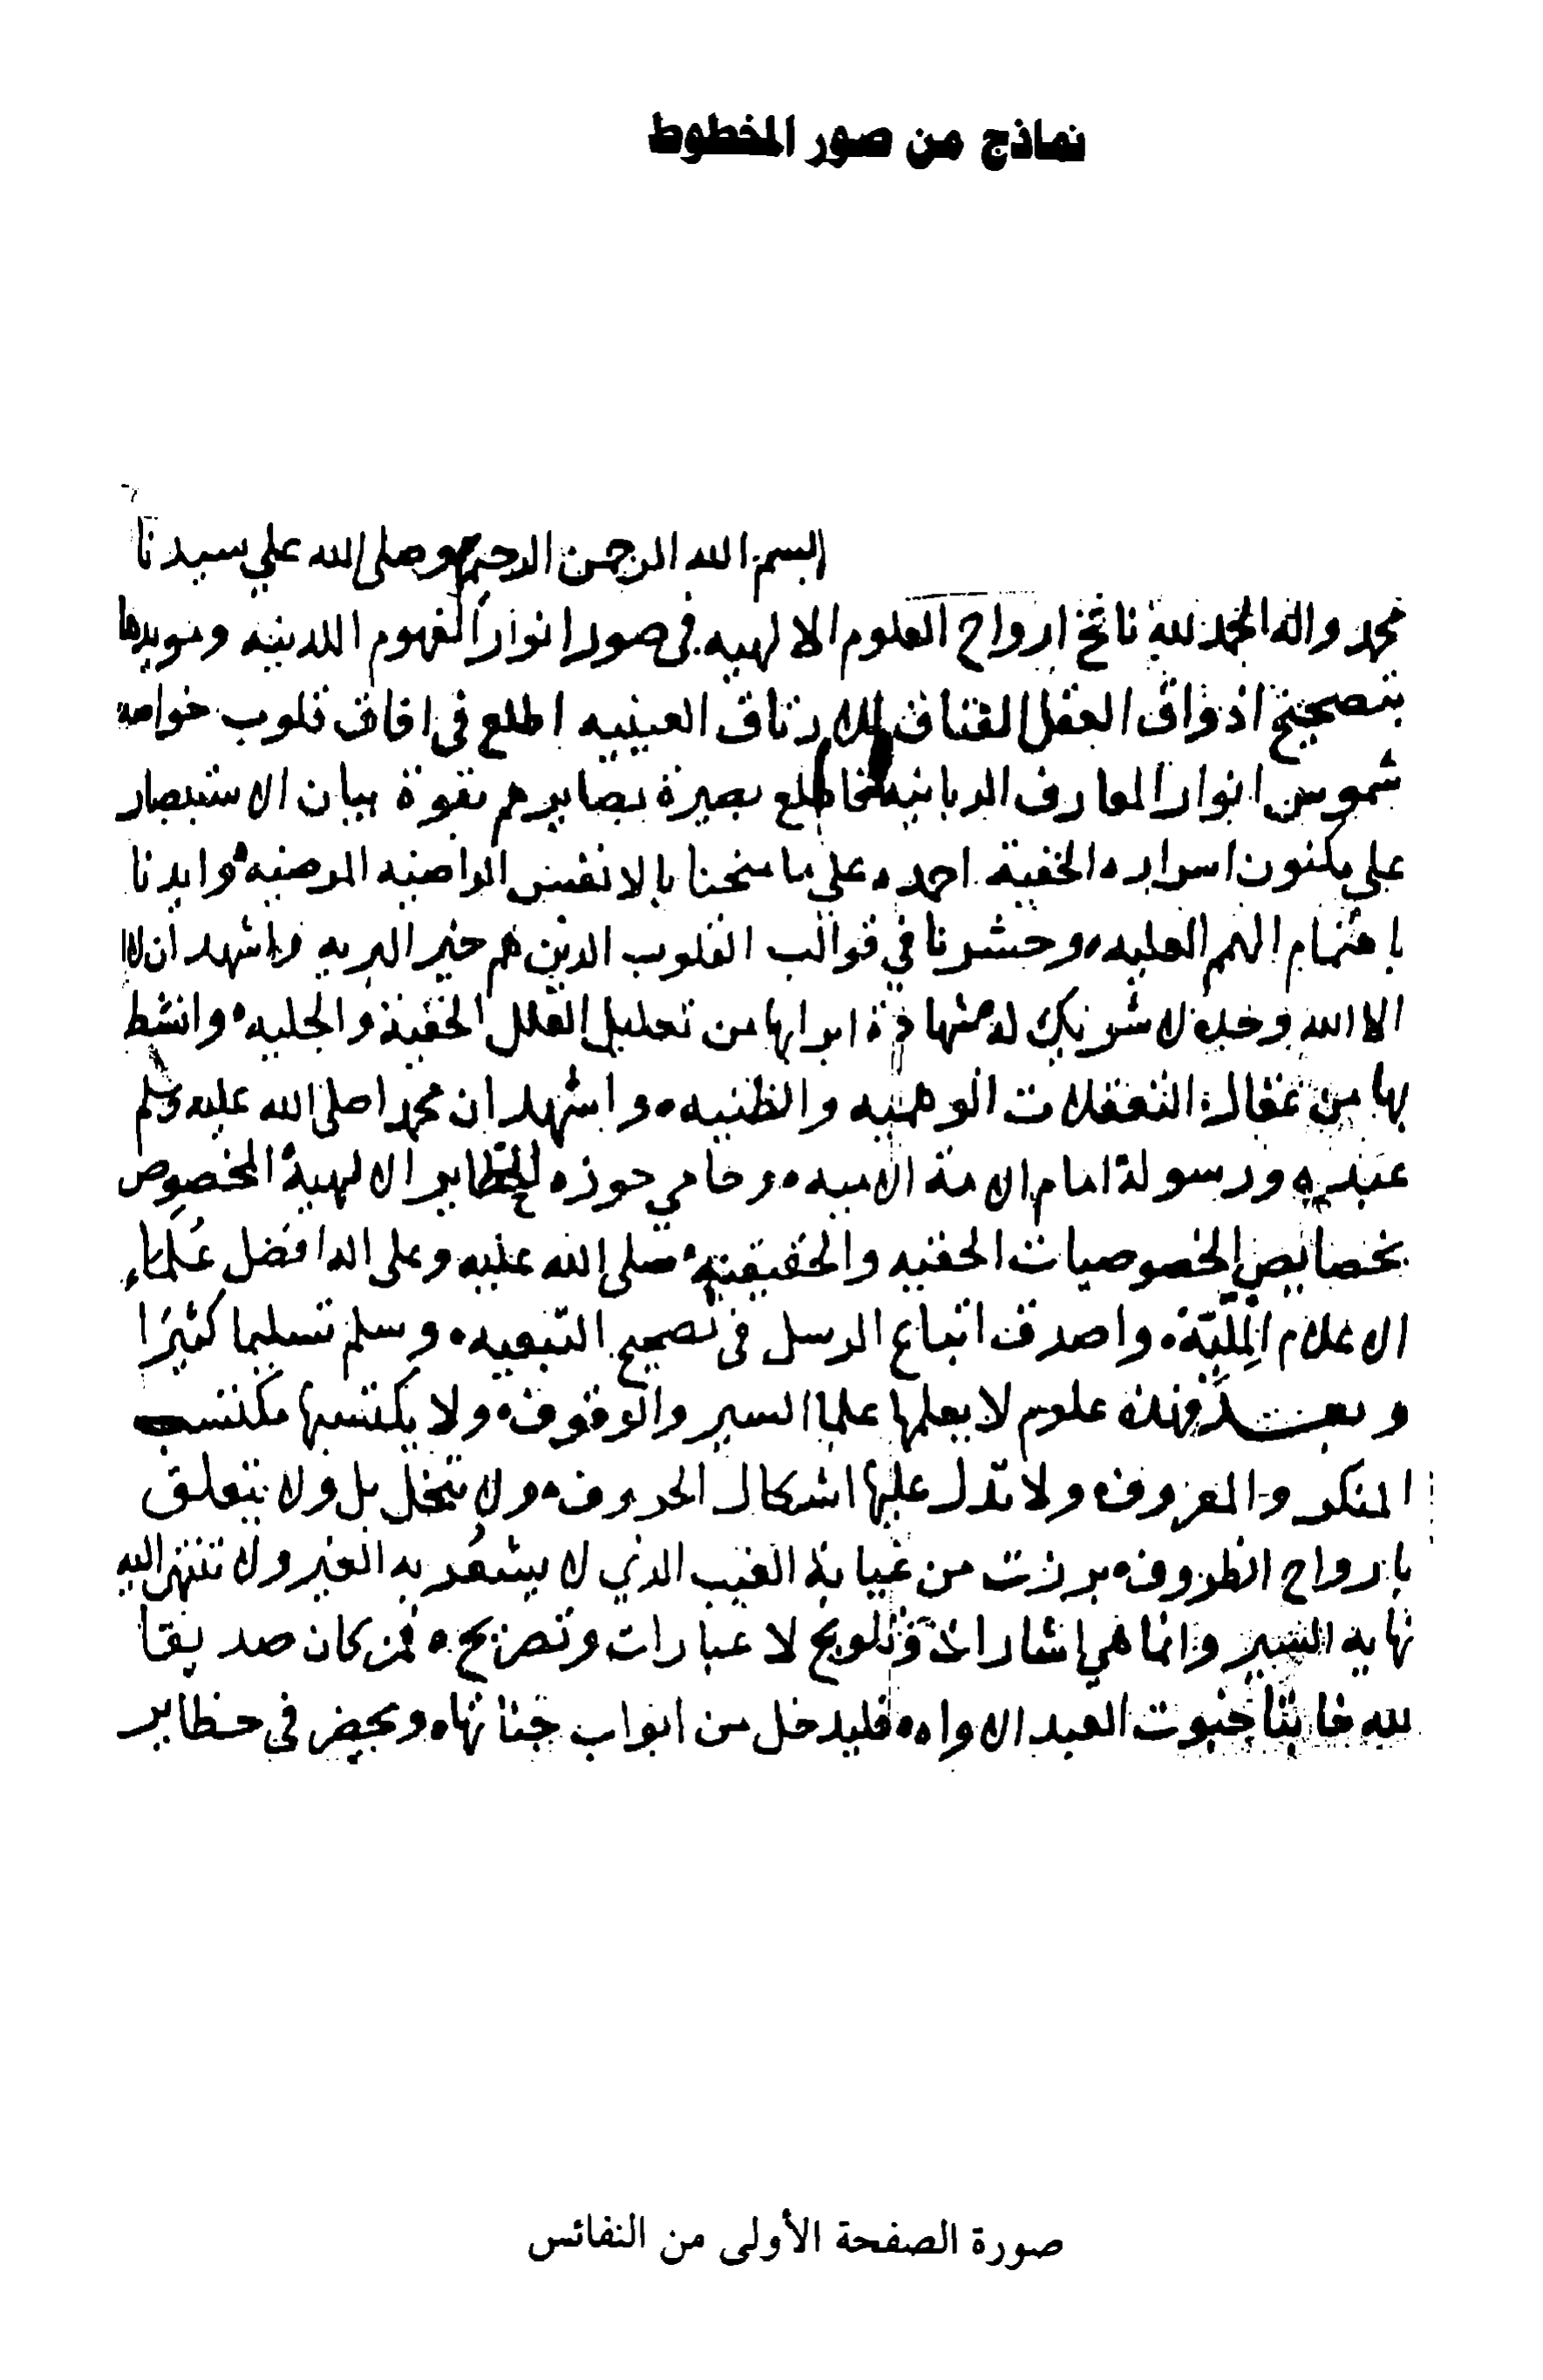 نماذج من صور المخطوط
بسم الله الرحمن الرحيم وصلى الله علي سيدنا
محمد واله الحمد لله نافخ ارواح العلوم الالهيه في صور انوار الفهوم اللدينه ومويدها
بتصحيح اذواق العقل الفتاق للارتاق العينيه اطلع في افاق قلوب خواصه
شموس انوار المعارف الربانيه بصيرة بصايرهم بقوة بيان الاستبصار
علي مكنون اسراره الخفية احمده علي ما منحنا بالانفس الراضيه المرضيه وايدنا
باهتمام الهمم العليه وحشرنا في قوالب القلوب الذين هم خير البريه واشهد ان لا
الا الله وحده لا شريك له شهادة ابرا بها من تحليل العلل الخفية والجليه وانشط
بها من عقال التعقلات الوهميه والظنيه واشهد ان محمدا صلى الله عليه وسلم
عبده ورسوله امام الامة الاميه وحامي حوزه الحظاير الالهية المخصوص
بخصايص الخصوصيات الحقيه والحقيقيه صلى الله عليه وعلى اله افضل علماء
الاعلام المليّة واصدق اتباع الرسل في تصحيح التبعيه وسلم تسليما كثيرًا
وبعد فهذه علوم لا يعلمها علما السير والوقوف ولا يكتسبها مكتسب
المنكر والمعروف ولا تدل عليها اشكال الحروف ولا تتخلل بل ولا تتعلق
بارواح الظروف برزت من غيابة الغيب الذي لا يشعر به الغير ولا تنتهي اليه
نهايه السير وانما هي اشارات وتلويح لا عبارات وتصريح فمن كان صديقا
لله العبد الاواه فليدخل من ابواب جناتها ويحضر في حظاير
صورة الصفحة الأولى من النفائس